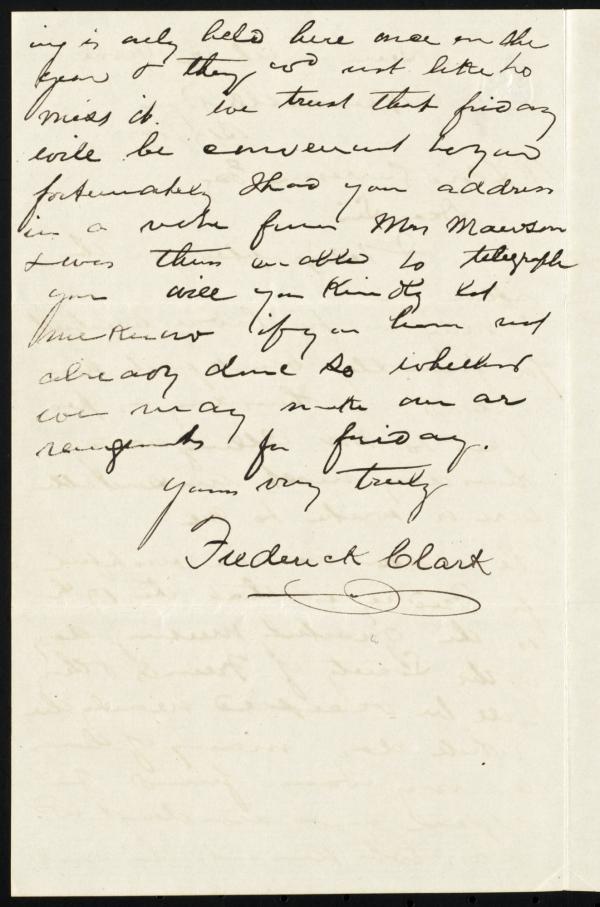 ing is only held here once in the
year & they wd not like to
miss it. We trust that friday
will be convenient to you
fortunately I had your address
in a note from Mrs Mawson
& was thus enabled to telegraph
you will you kindly let
me know if you have not
already done so whether
we may make our ar
rangements for friday.
Yours very truly
Frederick Clark